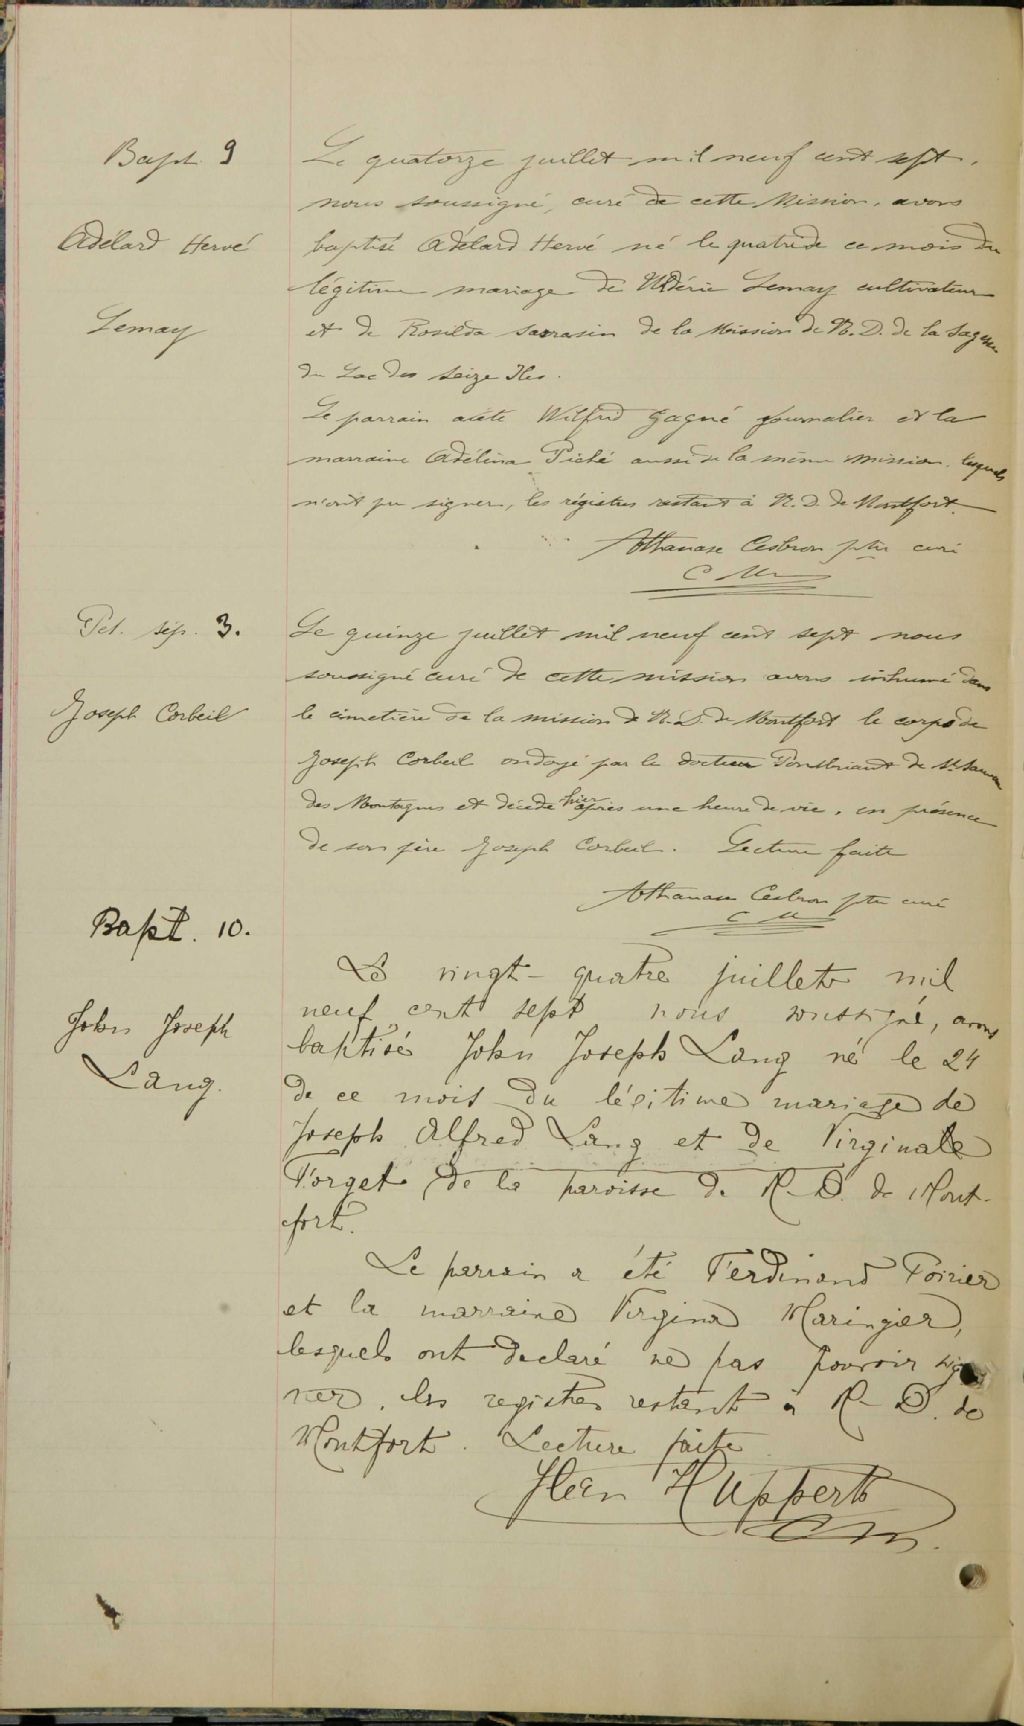 Bapt. 9
Adélard Hervé
Lemay
Le quatorze juillet mil neuf cent sept,
nous soussigné, curé de cette Mission, avons
baptisé Adélard Hervé né le quatre de ce mois du
légitime mariage de Médéric Lemay cultivateur
et de Rosilda Sarrasin de la Mission de N. D. de la Sagesse
du Lac des Seize Iles.
Le parrain a été Wilfrid Gagné journalier et la
marraine Adélina Piché aussi de la même mission, lesquels
n'ont pu signer, les régistres restant à N. D. de Montfort.
Athanase Cesbron ptre curé
C M
Pet. sép. 3.
Joseph Corbeil
Le quinze juillet mil neuf cent sept nous
soussigné curé de cette mission avons inhumé dans
le cimetière de la mission de N. D. de Montfort le corps de
Joseph Corbeil ondoyé par le docteur de St Sauveur
des Montagnes et décédé hier après une heure de vie, en présence
de son père Joseph Corbeil. Lecture faite
Athanase Cesbron ptre curé
C M
Bapt. 10.
John Joseph
Lang.
Le vingt-quatre juillet mil
neuf cent sept nous soussigné, avons
baptisé John Joseph Lang né le 24
de ce mois du légitime mariage de
Joseph Alfred Lang et de Virginale
Forget, de la paroisse de N. D. de Mont-
fort.
Le parrain a été Ferdinand Poirier
et la marraine Virgina Maringier,
lesquels ont declaré ne pas pouvoir sig
ner, les registres restant à N. D. de
Montfort. Lecture faite
Jean Hupperts
C M.